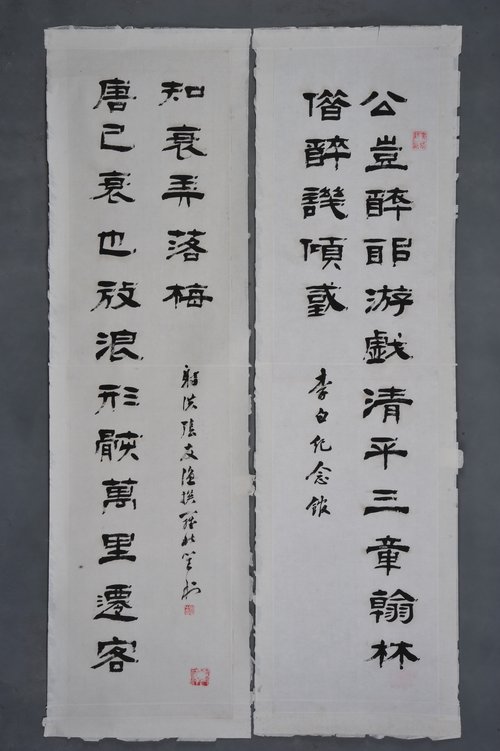 公豈醉耶游戲清平三章翰林
借醉譏傾或
李白纪念館
唐已衰也放浪形骸萬里遷客
知衰弄落梅
射洪張文漁撰